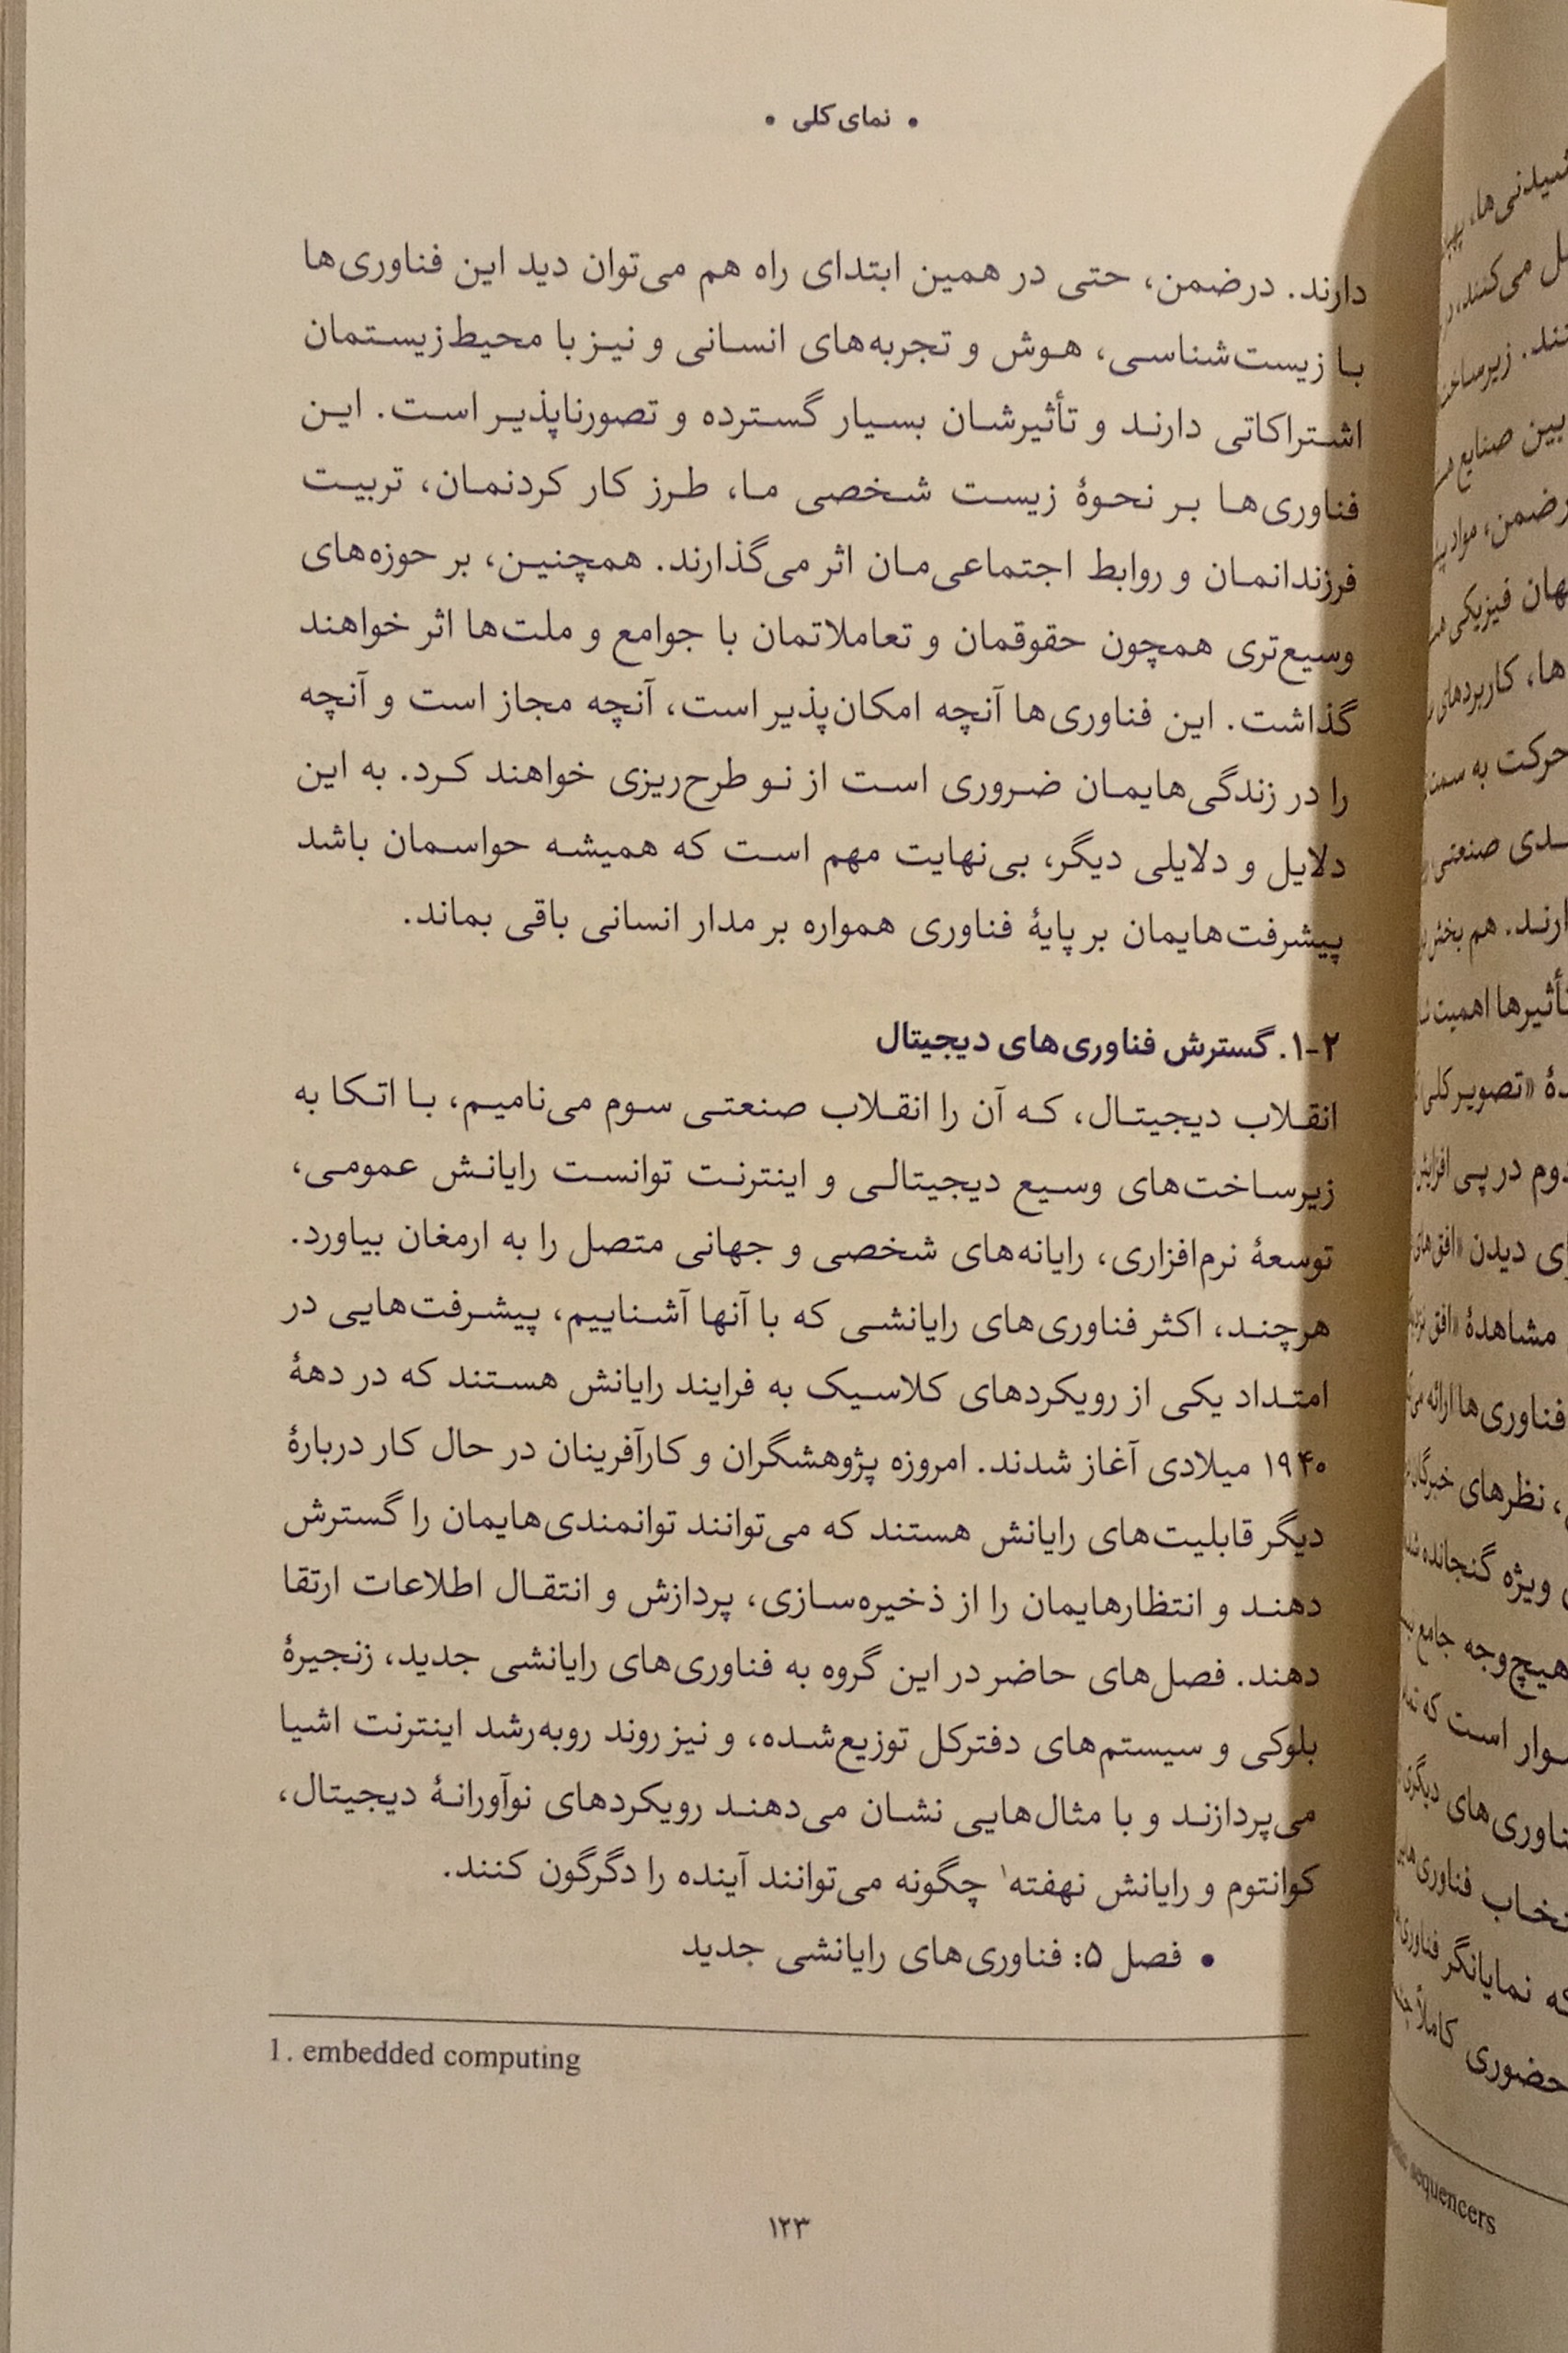 • نمای کلی •
دارند. درضمن، حتی در همین ابتدای راه هم می‌توان دید این فناوری‌ها
با زیست‌شناسی، هوش و تجربه‌های انسانی و نیز با محیط‌زیستمان
اشتراکاتی دارند و تأثیرشان بسیار گسترده و تصورناپذیر است. این
فناوری‌ها بر نحوۀ زیست شخصی ما، طرز کار کردنمان، تربیت
فرزندانمان و روابط اجتماعی‌مان اثر می‌گذارند. همچنین، بر حوزه‌های
وسیع‌تری همچون حقوقمان و تعاملاتمان با جوامع و ملت‌ها اثر خواهند
گذاشت. این فناوری‌ها آنچه امکان‌پذیر است، آنچه مجاز است و آنچه
را در زندگی‌هایمان ضروری است از نو طرح‌ریزی خواهند کرد. به این
دلایل و دلایلی دیگر، بی‌نهایت مهم است که همیشه حواسمان باشد
پیشرفت‌هایمان بر پایۀ فناوری همواره بر مدار انسانی باقی بماند.
۱-۲. گسترش فناوری‌های دیجیتال
انقلاب دیجیتال، که آن را انقلاب صنعتی سوم می‌نامیم، با اتکا به
زیرساخت‌های وسیع دیجیتالی و اینترنت توانست رایانش عمومی،
توسعۀ نرم‌افزاری، رایانه‌های شخصی و جهانی متصل را به ارمغان بیاورد.
هرچند، اکثر فناوری‌های رایانشی که با آنها آشناییم، پیشرفت‌هایی در
امتداد یکی از رویکردهای کلاسیک به فرایند رایانش هستند که در دهۀ
۱۹۴۰ میلادی آغاز شدند. امروزه پژوهشگران و کارآفرینان در حال کار دربارۀ
دیگر قابلیت‌های رایانش هستند که می‌توانند توانمندی‌هایمان را گسترش
دهند و انتظارهایمان را از ذخیره‌سازی، پردازش و انتقال اطلاعات ارتقا
دهند. فصل‌های حاضر در این گروه به فناوری‌های رایانشی جدید، زنجیرۀ
بلوکی و سیستم‌های دفترکل توزیع‌شده، و نیز روند روبه‌رشد اینترنت اشیا
می‌پردازند و با مثال‌هایی نشان می‌دهند رویکردهای نوآورانۀ دیجیتال،
کوانتوم و رایانش نهفته۱ چگونه می‌توانند آینده را دگرگون کنند.
• فصل ۵: فناوری‌های رایانشی جدید
1. embedded computing
۱۲۳